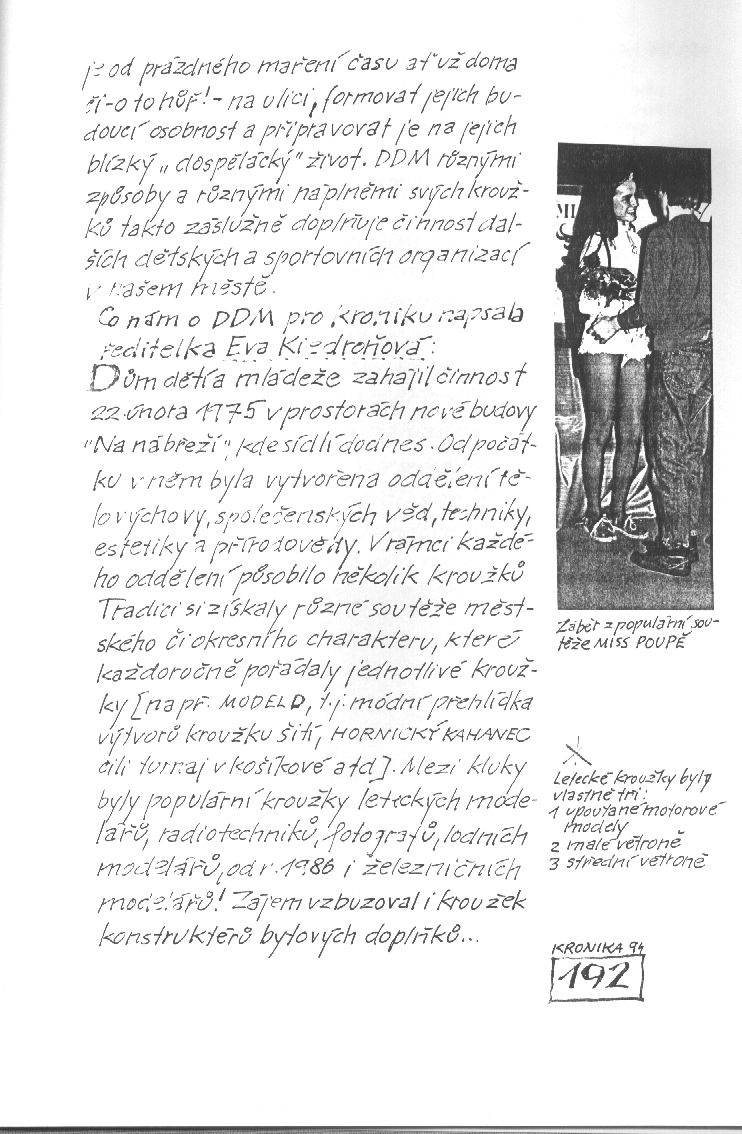 je od prázdného maření času ať už doma
či - o to hůř! - na ulici, formovat jejich bu-
doucí osobnost a připravovat je na jejich
blízký „dospělácký" život. DDM různými
způsoby a různými náplněmi svých krouž-
ků takto záslužně doplňuje činnost dal-
ších dětských a sportovních organizací
v našem městě.
Co nám o DDM pro kroniku napsala
ředitelka Eva Kiedroňová:
Dům dětí a mládeže zahájil činnost
22. února 1975 v prostorách nové budovy
"Na nábřeží", kde sídlí dodnes. Od počát-
ku v něm byla vytvořena oddělení tě-
lovýchovy, společenských věd, techniky,
estetiky a přírodovědy. V rámci každé-
ho oddělení působilo několik kroužků
Tradici si získaly různé soutěže měst-
ského či okresního charakteru, které
každoročně pořádaly jednotlivé krouž-
ky [např. MODELD, t.j. módní přehlídka
výtvorů kroužku šití, HORNICKÝ KAHANEC
čili turnaj v košíkové atd]. Mezi kluky
byly populární kroužky leteckých mode-
lářů, radiotechniků, fotografů, lodních
modelářů, od r. 1986 i železničních
modelářů! Zájem vzbuzoval i kroužek
konstruktérů bytových doplňků...
MI
Záběr z populární sou-
těže MISS POUPĚ
Letecké kroužky byly
vlastně tři:
1 upoutané motorové
modely
2 malé větroně
3 střední větroně
KRONIKA 94
192